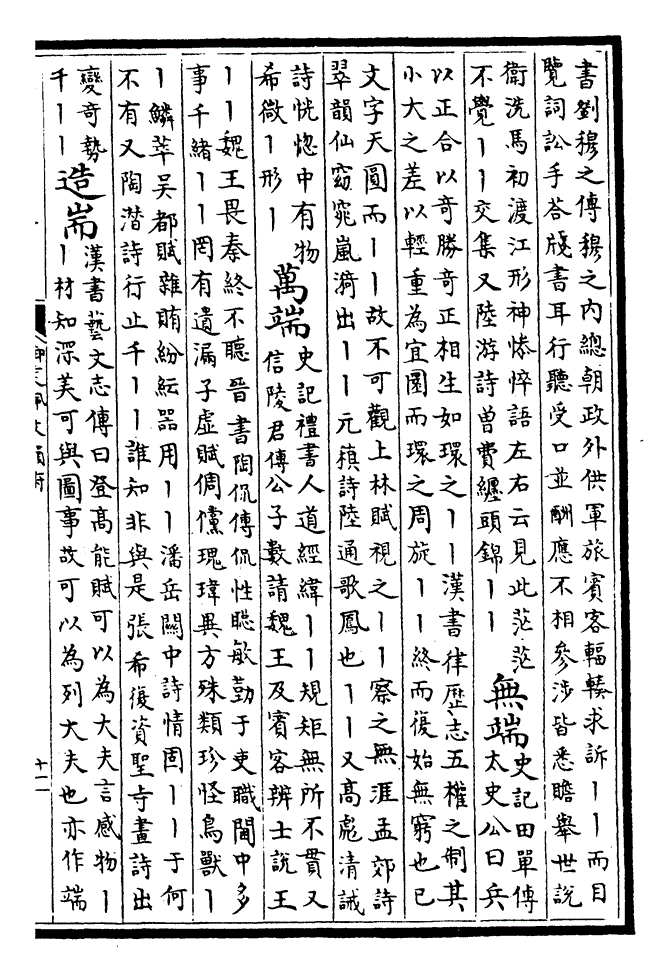 書劉穆之傳穆之内總朝政外供軍旅賓客輻輳求訴丨丨而目
覽詞訟手荅牋書耳行聽受口並酬應不相參涉皆悉贍舉世說
衛洗馬初渡江形神慘悴語左右云見此茫茫
不覺丨丨交集又陸游詩曾費纏頭錦丨丨
無端
史記田單傳
太史公曰兵
以正合以奇勝奇正相生如環之丨丨漢書律歷志五權之制其
小大之差以輕重為宜圜而環之周旋丨丨終而復始無窮也已
文字天圓而丨丨故不可觀上林賦視之丨丨察之無涯孟郊詩
翠韻仙窈窕嵐漪出丨丨元稹詩陸通歌鳳也丨丨又高彪清誡
詩恍惚中有物
希微丨形丨
萬端
史記禮書人道經緯丨丨規矩無所不貫又
信陵君傳公子數請魏王及賓客辨士說王
丨丨魏王畏秦終不聽晉書陶侃傳侃性聡敏勤于吏職閫中多
事千緒丨丨罔有遺漏子虛賦倜儻瑰瑋異方殊類珍怪鳥獸丨
丨鱗萃吳都賦雜賄紛紜器用丨丨潘岳關中詩情固丨丨于何
不有又陶潛詩行止千丨丨誰知非與是張希復資聖寺畫詩出
變奇勢
千丨丨
造耑
漢書藝文志傳曰登高能賦可以為大夫言感物丨
丨材知深美可與圖事故可以為列大夫也亦作端
十二